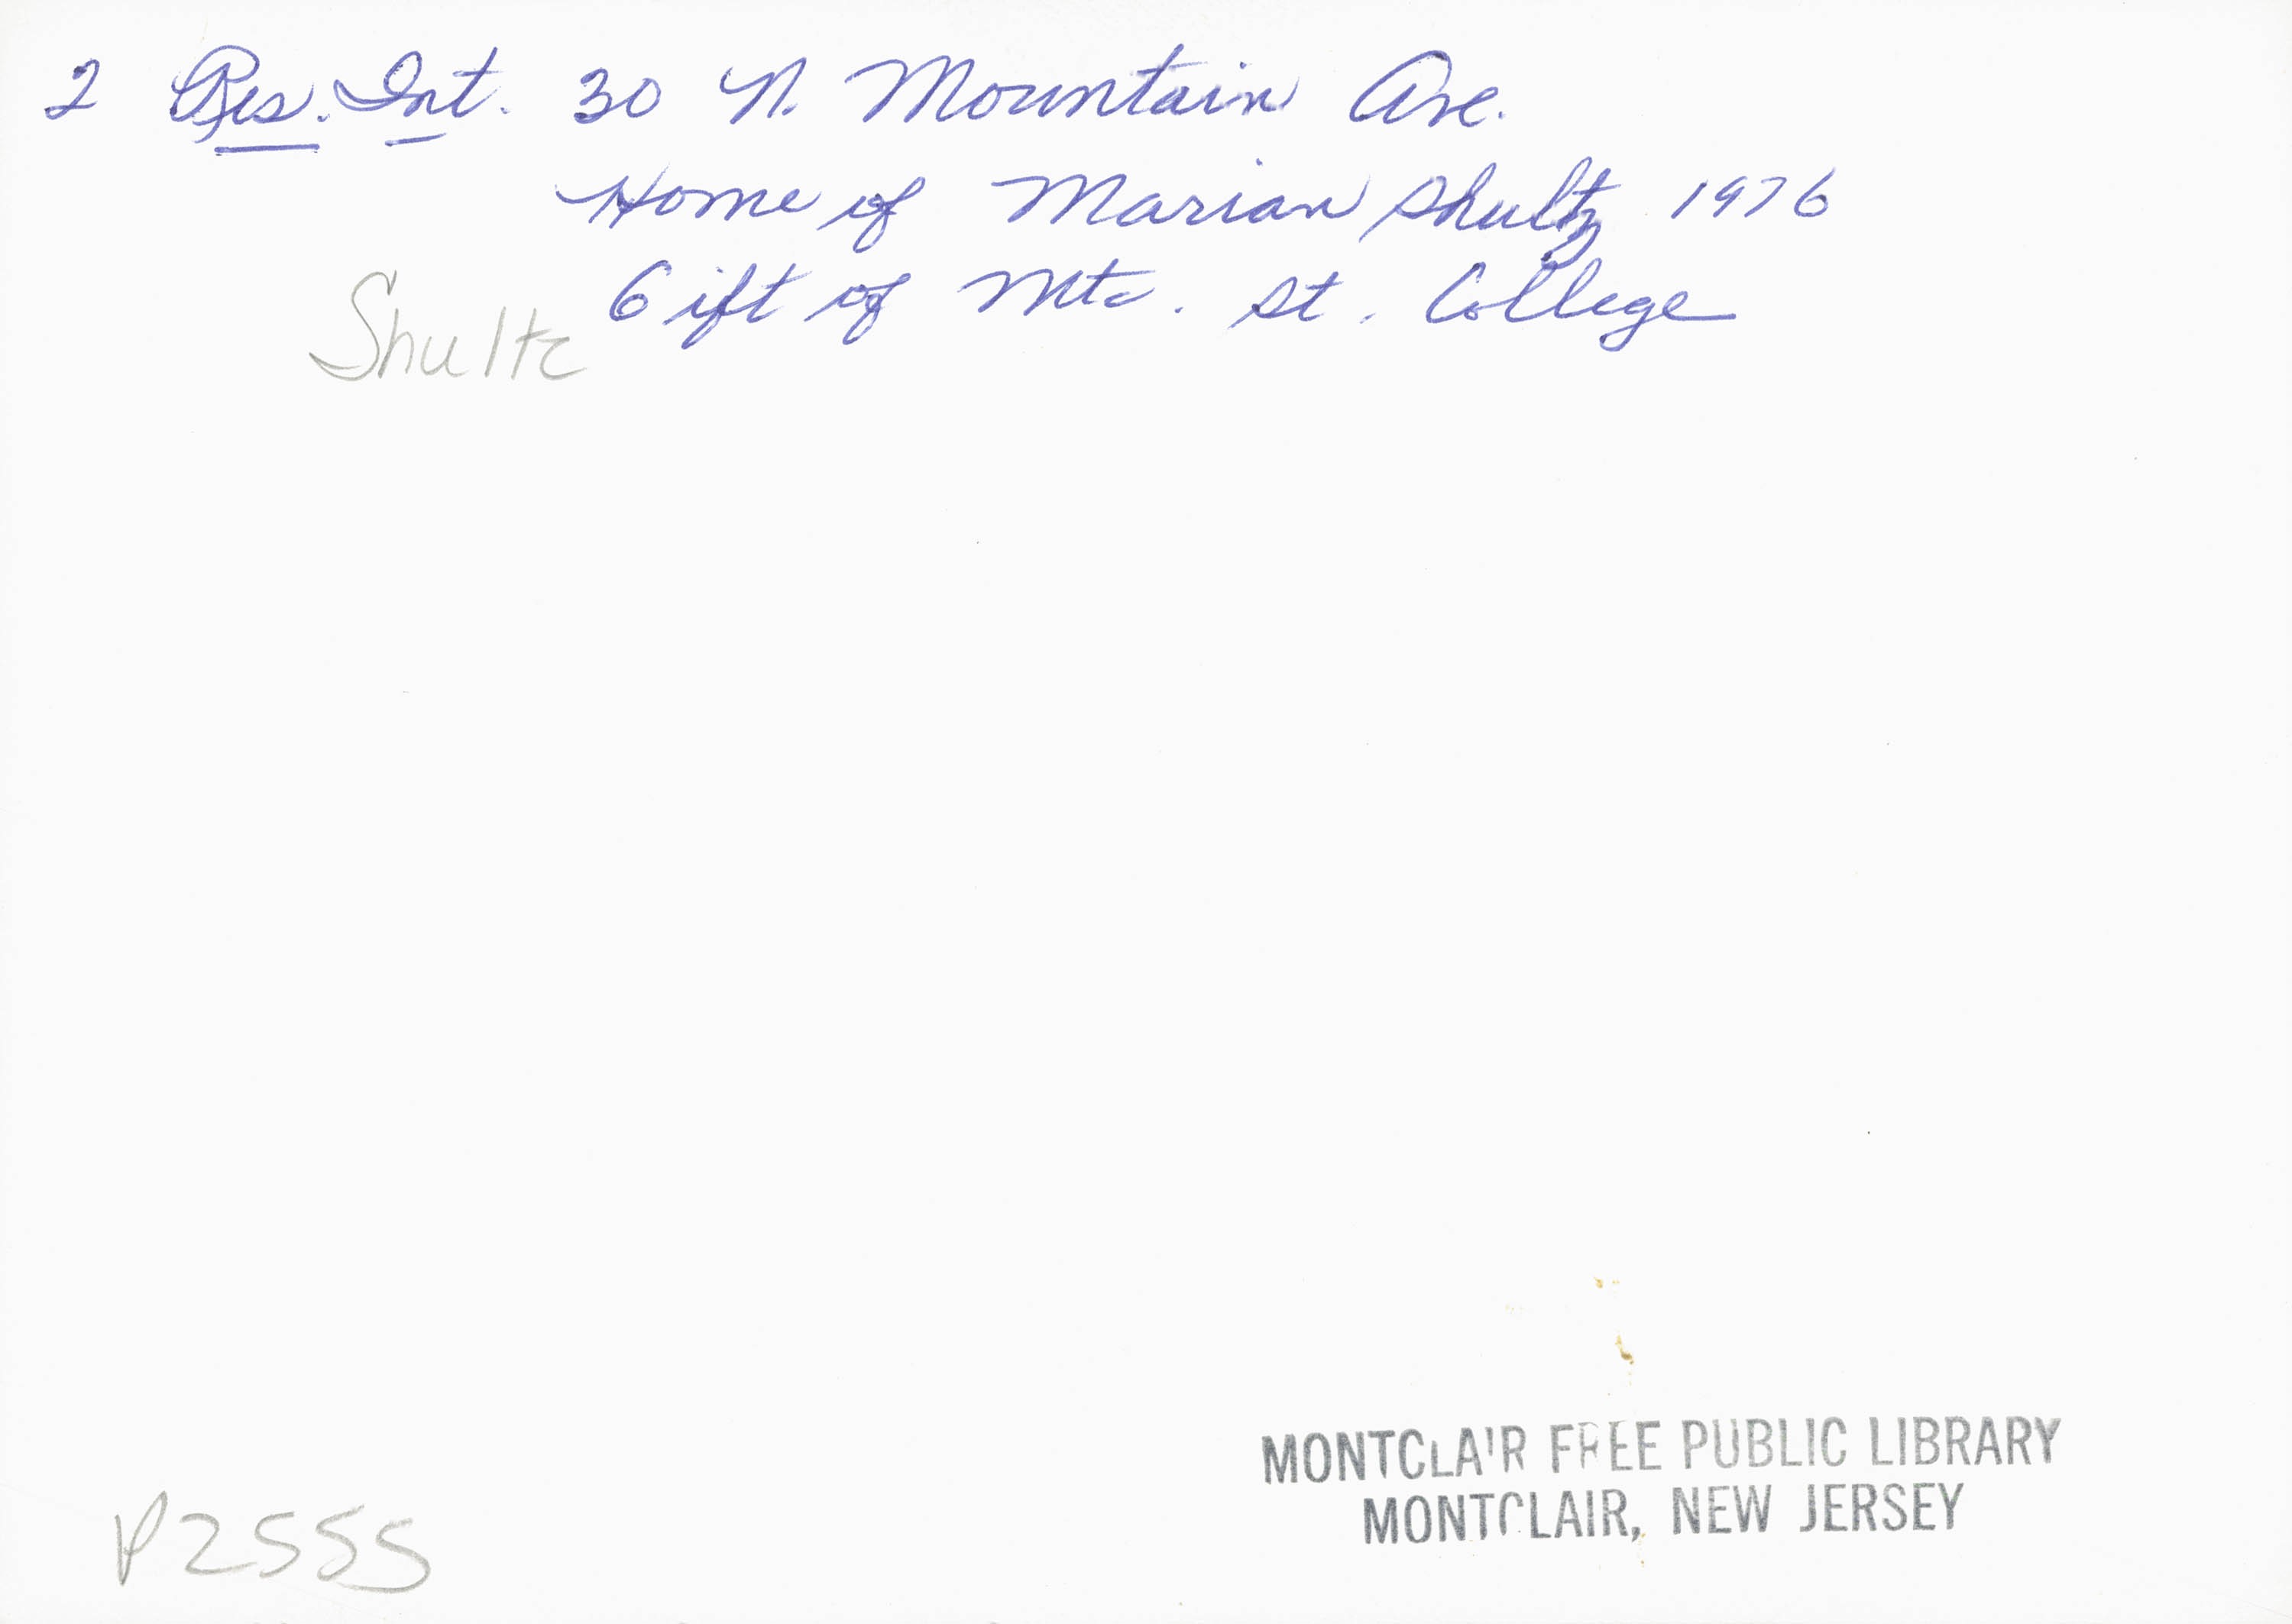 2 Res. Int. 30 N. Mountain Ave.
Home of Marian Shultz 1976
Gift of Mtc. St. College
Shultz
P2555
MONTCLAIR FREE PUBLIC LIBRARY
MONTCLAIR, NEW JERSEY